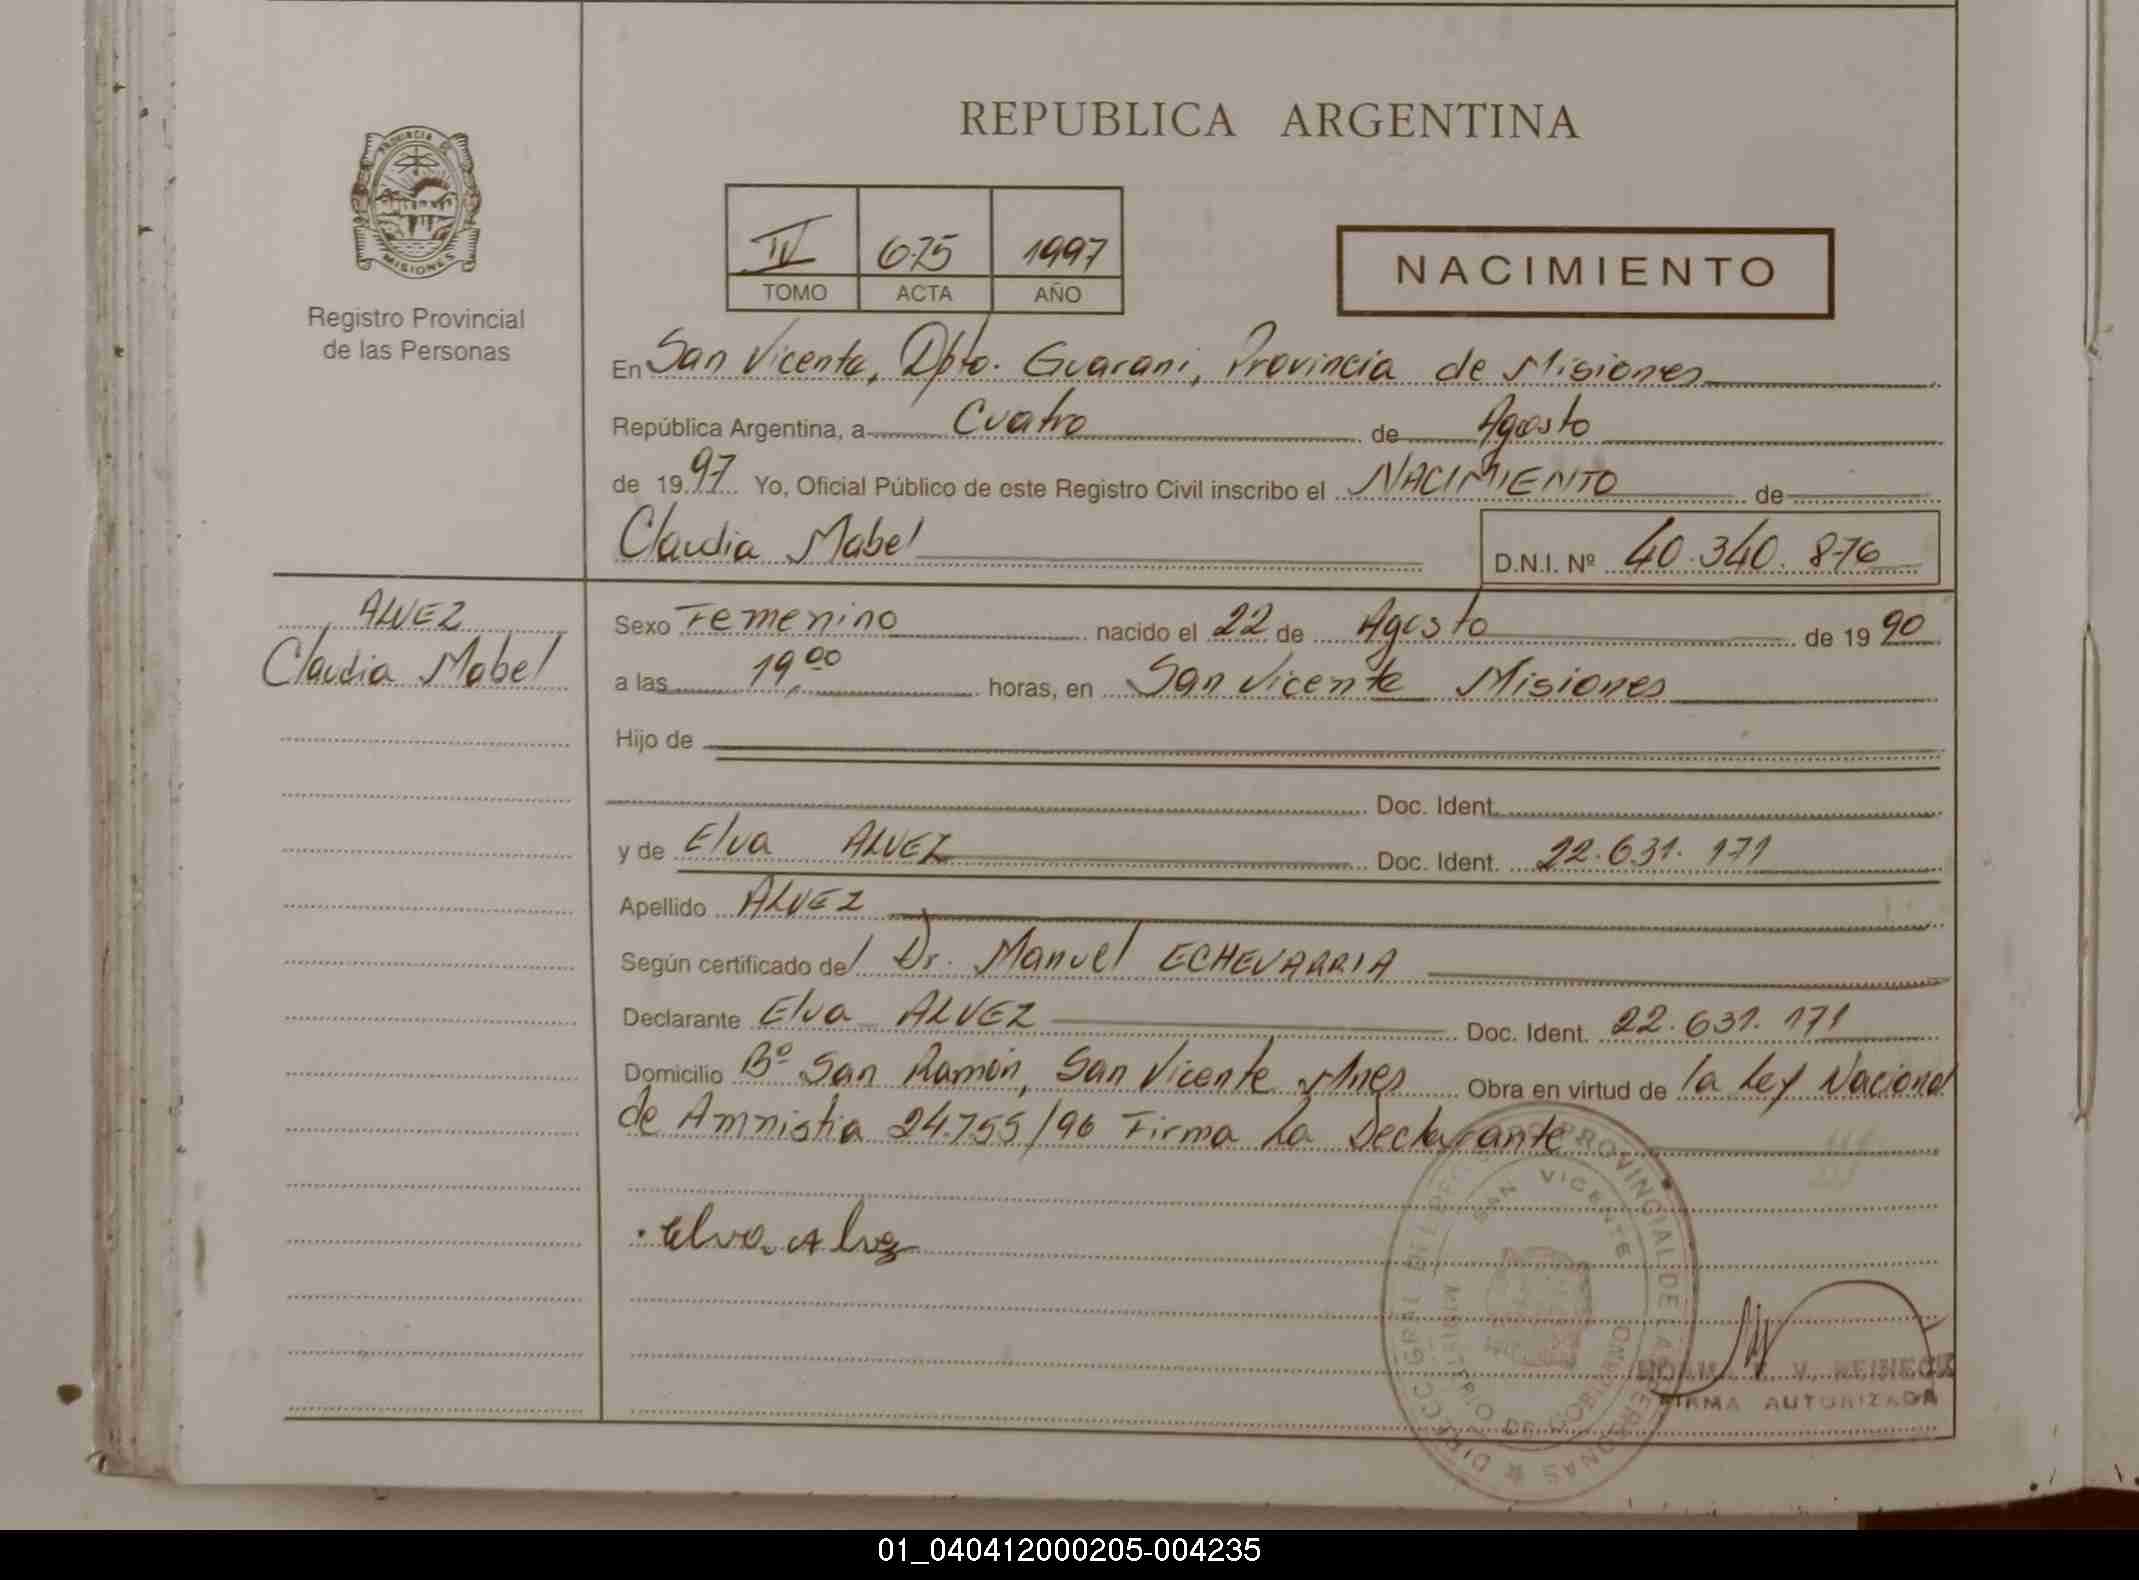 REPUBLICA ARGENTINA
PROVINCIA DE
MISIONES
Registro Provincial
de las Personas
IV 675 1997
TOMO ACTA AÑO
NACIMIENTO
En San Vicente, Dpto. Guarani, Provincia de Misiones
República Argentina, a Cuatro de Agosto
de 1997 Yo, Oficial Público de este Registro Civil inscribo el NACIMIENTO de
Claudia Mabel D.N.I. Nº 40.340.876
ALVEZ
Claudia Mabel
Sexo Femenino nacido el 22 de Agosto de 1990
a las 19,00 horas, en San Vicente Misiones
Hijo de
Doc. Ident.
y de Elva ALVEZ Doc. Ident. 22.631.171
Apellido ALVEZ
Según certificado del Dr. Manuel ECHEVARRIA
Declarante Elva ALVEZ Doc. Ident. 22.631.171
Domicilio Bº San Ramón, San Vicente Mnes Obra en virtud de la Ley Nacional
de Amnistia 24.755/96 Firma La Declarante
Elva Alvez
SAN VICENTE
MINISTERIO DE GOBIERNO
V. REINECK
FIRMA AUTORIZADA
01_040412000205-004235